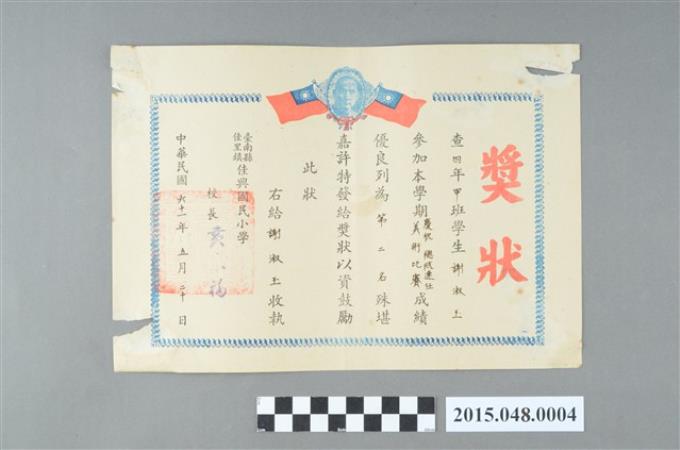 獎狀
查四年甲班學生謝淑玉
參加本學期慶祝總統連任美術比賽成績
優良列為第二名殊堪
嘉許特發給獎狀以資鼓勵
此狀
右給謝淑玉收執
臺南縣佳里鎮佳興國民小學
校長
中華民國六十一年五月二十日
2015.048.0004